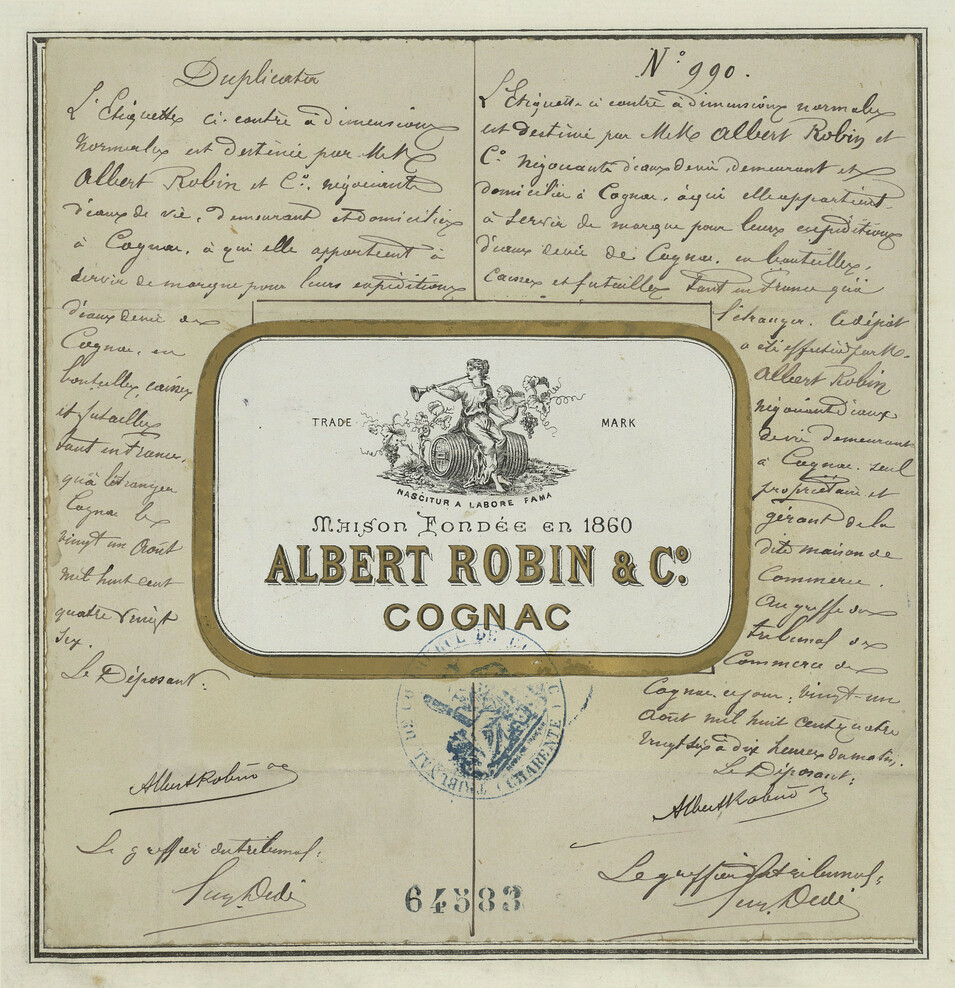 Duplicata
L'Etiquette ci-contre à dimensions
Normales est destinée par MM.
Albert Robin et Cº. négociants
d'eaux de vie, demeurant et domiciliés
à Cognac, à qui elle appartient à
servir de marque pour leurs expéditions
d'eaux de vie de
Cognac, en
bouteilles, caisses
et futailles
tant en France,
qu'à l'étranger
Cognac le
vingt un Août
mil huit cent
quatre vingt
six.
Le Déposant:
Albert Robin
Le greffier du tribunal:
Nº 990.
L'Etiquette ci contre à dimensions normales
est destinée par MM Albert Robin et
Cº négociants d'eaux de vie, demeurant et
domiciliés à Cognac, à qui elle appartient,
à servir de marque pour leurs expéditions
d'eaux de vie de Cognac, en bouteilles,
Caisses et futailles tant en France qu'à
l'étranger. Ce dépôt
a été effectué par M.
Albert Robin
négociant d'eaux
de vie demeurant
à Cognac. seul
propriétaire et
gérant de la
dite maison de
Commerce.
Au greffe du
tribunal de
Commerce de
Cognac, ce jour, vingt-un
Août mil huit cent quatre
vingt six à dix heures du matin.
Le Déposant:
Albert Robin
Le greffier du tribunal:
TRADE MARK
NASCITUR A LABORE FAMA
Maison Fondée en 1860
ALBERT ROBIN & Cº.
COGNAC
TRIBUNAL DE
(CHARENTE)
64583